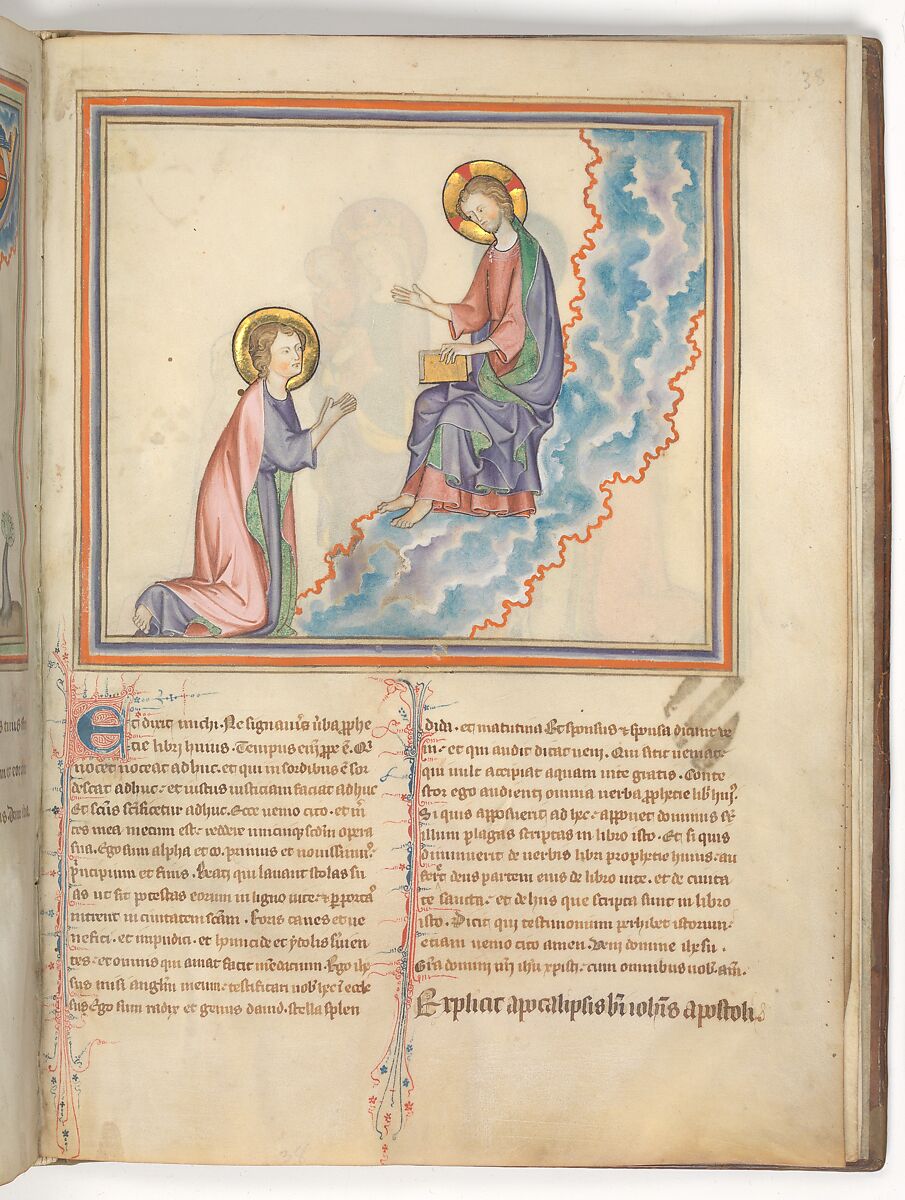 38
Et dixit michi. Ne signaveris verba prophe
tie libri huius. Tempus enim prope est. Qui
nocet noceat adhuc. et qui in sordibus est sor
descat adhuc. et iustus iusticiam faciat adhuc
Et scūs scīficetur adhuc. Ecce uenio cito. et m̄
ces mea mecum est. reddere unicuiq; scdm opera
sua. Ego sum alpha et ω. primus et nouissimus.
principium et finis. Beati qui lauant stolas su
as ut sit potestas eorum in ligno uite. et portis
intrent in ciuitatem scām. Foris canes et ue
nefici. et impudici. et homicide et ydolis seruien
tes. et omnis qui amat et facit mendacium. Ego ihe
sus misi anglm meum testificari uob hec in eccle
sus Ego sum radix et genus dauid. stella splen
dida. et matutina Et sponsus & sponsa dicunt ve
ni. et qui audit dicat veni. Qui sitit veniat.
qui uult accipiat aquam uite gratis. Conte
stor ego audienti omnia verba prophetie libri huius.
Si quis apposuerit ad hec. apponet dominus super
illum plagas scriptas in libro isto. Et si quis
diminuerit de uerbis libri prophetie huius. au
feret deus partem eius de libro uite. et de ciuita
te sancta. et de hiis que scripta sunt in libro
isto. Dicit qui testimonium perhibet istorum.
etiam uenio cito amen. Veni domine ihū.
Grā domini nrī ihū xpisti. cum omnibus uob. am̄.
Explicit apocalipsis bī̄ ioh̄is apostoli.
38